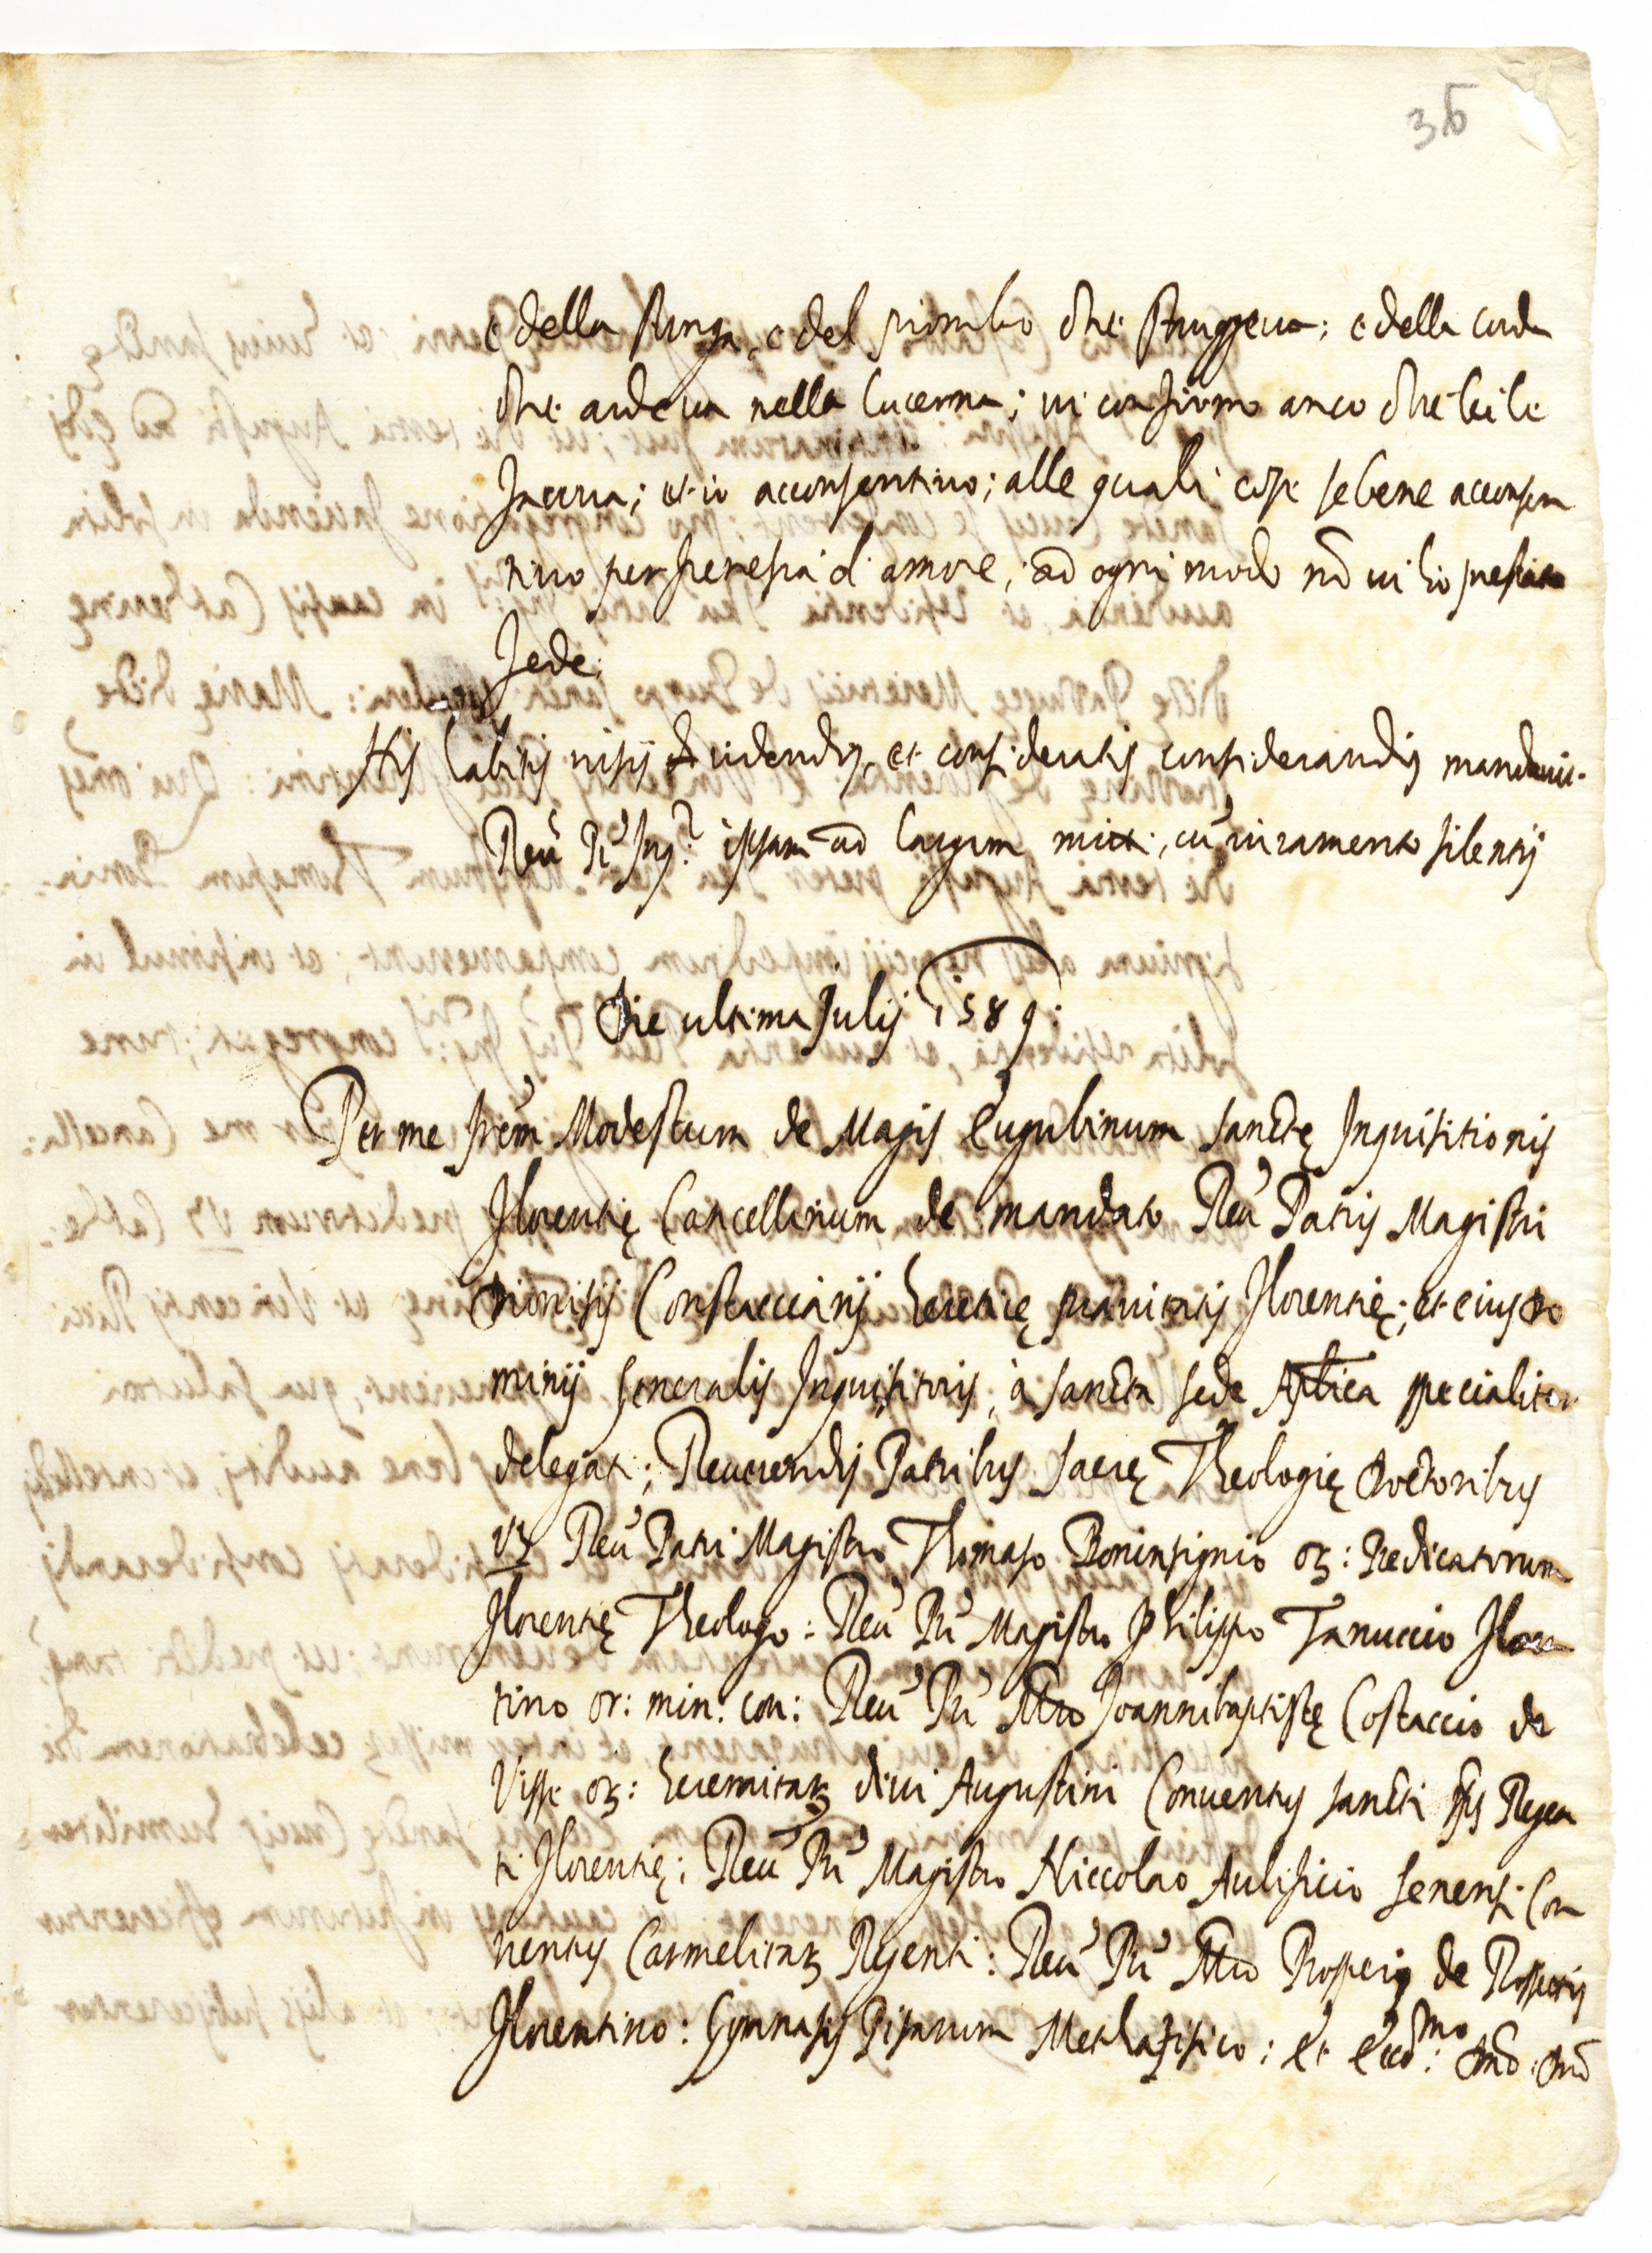 36
e della stringa, e del piombo che struggeva; e della corda
che ardeva nella lucerna; vi confirmo anco che lei le
faceva; et io acconsentivo; alle quali cose sebene acconsen
tivo per frenesia d'amore, ad ogni modo nō vi ho prestato
fede.
His habitis visis videndis, et consideratis considerandis mandavit
Reu' P' Inq.r ipsam ad largum mitti, cū iuramento silentij
Die ultima Julij 1589:
Per me frēm Modestum de Magis Eugubinum sanctę Inquisitionis
Florentię Cancellarium de mandato Reu' Patris Magistri
Dionisij Constacciarij heretię pravitatis Florentię; et eius do
minij Generalis Inquisitoris, à sancta sede Aplica specialiter
delegati; Reuerendis Patribus sacrę Theologię Doctoribus
vz Reu' Patri Magistro Thomaso Boninsignio oȝ: Predicatorum
Florentię Theologo: Reu' Pri' Magistro Philippo Tanuccio Floren
tino or: min: con: Reu' Pri' Mro Joannibaptistę Costaccio de
Visse oȝ: heremitarȝ divi Augustini Conventus sancti sps Regen
ti Florentię; Reu' Pri' Magistro Niccolao Aulificio senensi Con
ventus Carmelitarȝ Regenti: Reu' Pri' Mro Prospero de Rosperis
Florentino: Gymnasij Pisarum Methafisico: et Eccmo: Dnō: Dnō